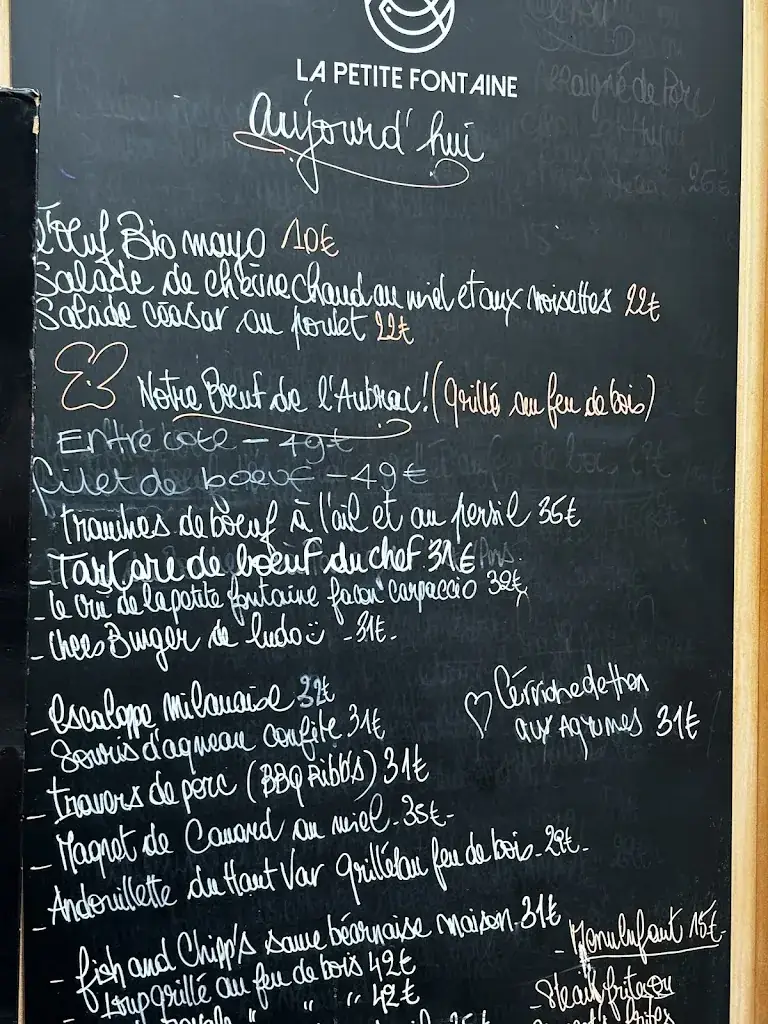 LA PETITE FONTAINE
aujourd'hui
L'oeuf Bio mayo 10€
Salade de chèvre chaud au miel et aux noisettes 22€
Salade céasar au poulet 22€
Notre Boeuf de l'Aubrac! (grillé au feu de bois)
Entrecote - 49€
filet de boeuf - 49€
- tranches de boeuf à l'ail et au persil 36€
- Tartare de boeuf du chef 31€
- le cru de la petite fontaine façon carpaccio 32€
- chees Burger de ludo - 31€-
- escaloppe milanaise 32€
- Souris d'agneau confite 31€
- travers de porc (BBQ Ribb's) 31€
- Magret de Canard au miel - 35€-
- Andouillette du Haut Var grillé au feu de bois - 29€-
Cévviche de thon
aux Agrumes 31€
- fish and Chipp's sauce béarnaise maison - 31€
- Loup grillé au feu de bois 42€
" " " 42€
- Menu Enfant 15€-
Steak frites ou
frites